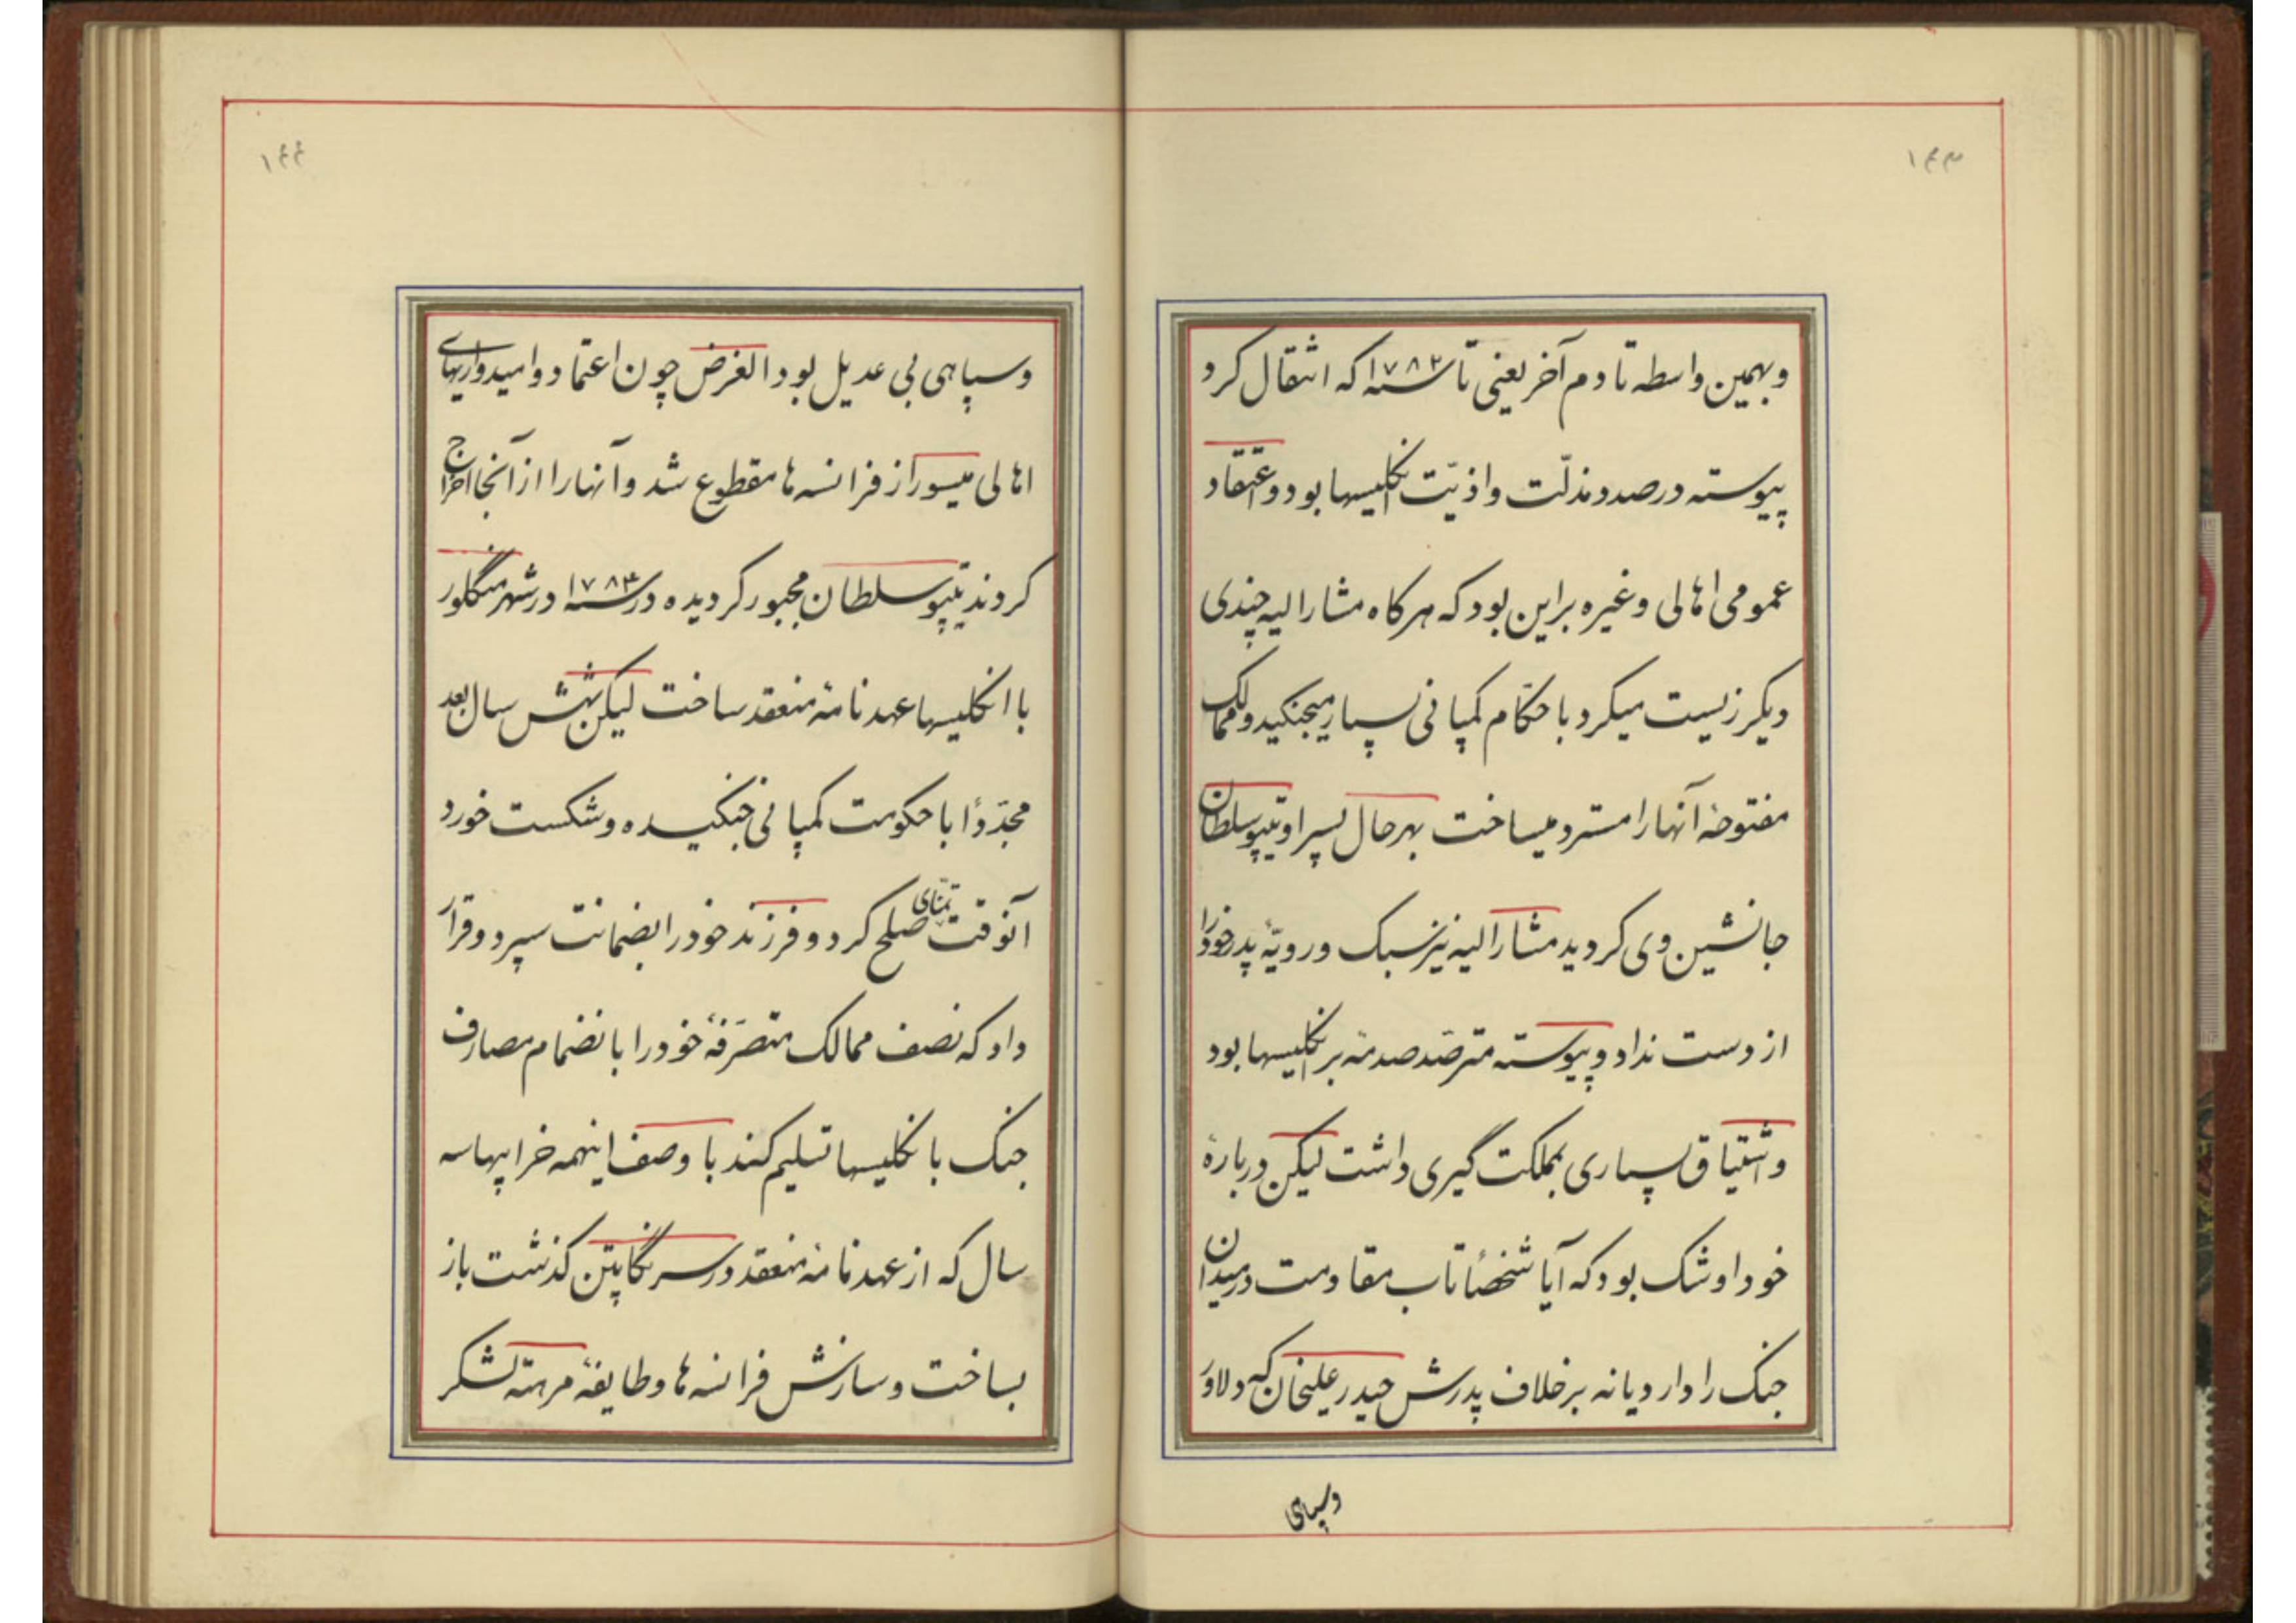 ۱۴۳
وبهمین واسطه تا دم آخر یعنی تا سنه ۱۷۸۲ که انتقال کرد
پیوسته درصدد مذلّت واذیّت انکلیسها بود واعتقاد
عمومی اهالی وغیره براین بود که هرکاه مشارالیه چندی
دیکر زیست میکرد با حکّام کمپانی بسیار میجنکید وممالک
مفتوحهٔ آنها را مسترد میساخت بهرحال پسر او تیپو سلطان
جانشین وی کردید مشارالیه نیز سبک ورویّهٔ پدر خود را
از دست نداد وپیوسته مترصّد صدمه بر انکلیسها بود
واشتیاق بسیاری بمملکت گیری داشت لیکن دربارهٔ
خود او شک بود که آیا شخصاً تاب مقاومت در میدان
جنک را دارد یا نه برخلاف پدرش حیدر علیخان که دلاور
وسپاهی
۱۴۴
وسپاهی بی عدیل بود الغرض چون اعتماد وامیدواریهای
اهالی میسور از فرانسه ها مقطوع شد وآنها را از آنجا اخراج
کردند تیپو سلطان مجبور کردیده در سنه ۱۷۸۳ در شهر منگلور
با انکلیسها عهدنامهٔ منعقد ساخت لیکن شش سال بعد
مجدّداً با حکومت کمپانی جنکیده وشکست خورد
آنوقت تمنّای صلح کرد دو فرزند خود را بضمانت سپرد وقرار
داد که نصف ممالک متصرّفهٔ خود را بانضمام مصارف
جنک بانکلیسها تسلیم کند با وصف اینهمه خرابیها سه
سال که از عهدنامهٔ منعقد در سرنگاپتن کذشت باز
بساخت وسازش فرانسه ها وطایفهٔ مرهته لشکر